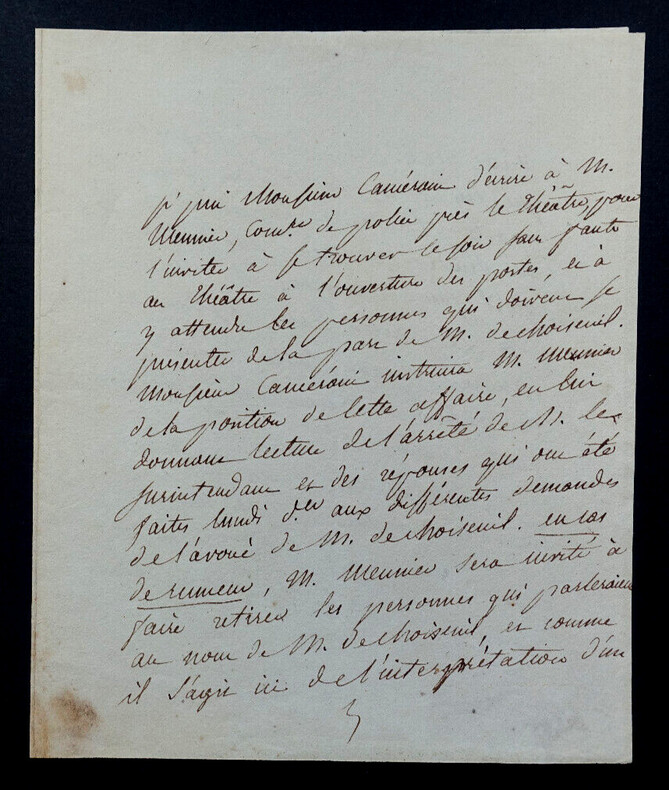 je prie Monsieur Camérani d'écrire à M.
Meunier, Com.re de police près le Théâtre, pour
l'inviter à se trouver ce soir sans faute
au Théâtre à l'ouverture des portes, et à
y attendre les personnes qui doivent se
présenter de la part de M. de choiseuil.
Monsieur Camérani instruira M. Meunier
de la position de cette affaire, en lui
donnant lecture de l'arrêté de M. le
surintendant et des réponses qui ont été
faites lundi d.er aux différentes demandes
de l'avoué de M. de choiseuil. en cas
de rumeur, M. Meunier sera invité à
faire retirer les personnes qui parleraient
au nom de M. de choiseuil, et comme
il s'agit ici de l'interprétation d'un